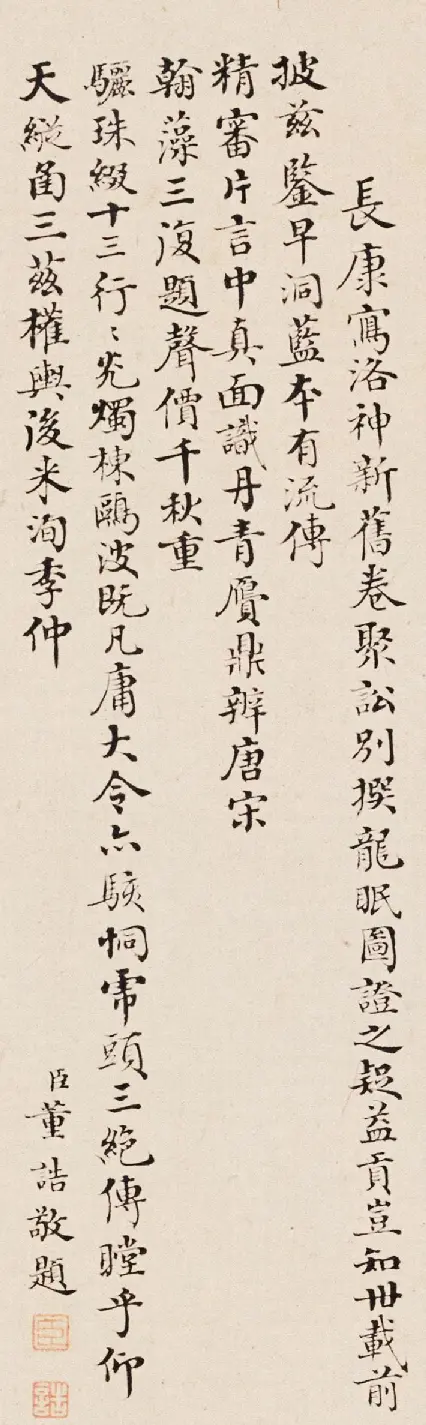 長康寫洛神新舊卷聚訟別撰龍眠圖證之疑益貢豈知卅載前
披茲鑒早洞藍本有流傳
精審片言中真面識丹青贗鼎辨唐宋
翰藻三復題聲價千秋重
驪珠綴十三行〻光燭棟鷗波既凡庸大令亦駭恫帝頭三絕傳瞠乎仰
天縱函三茲權輿後來洵季仲
臣董誥敬題
臣
誥